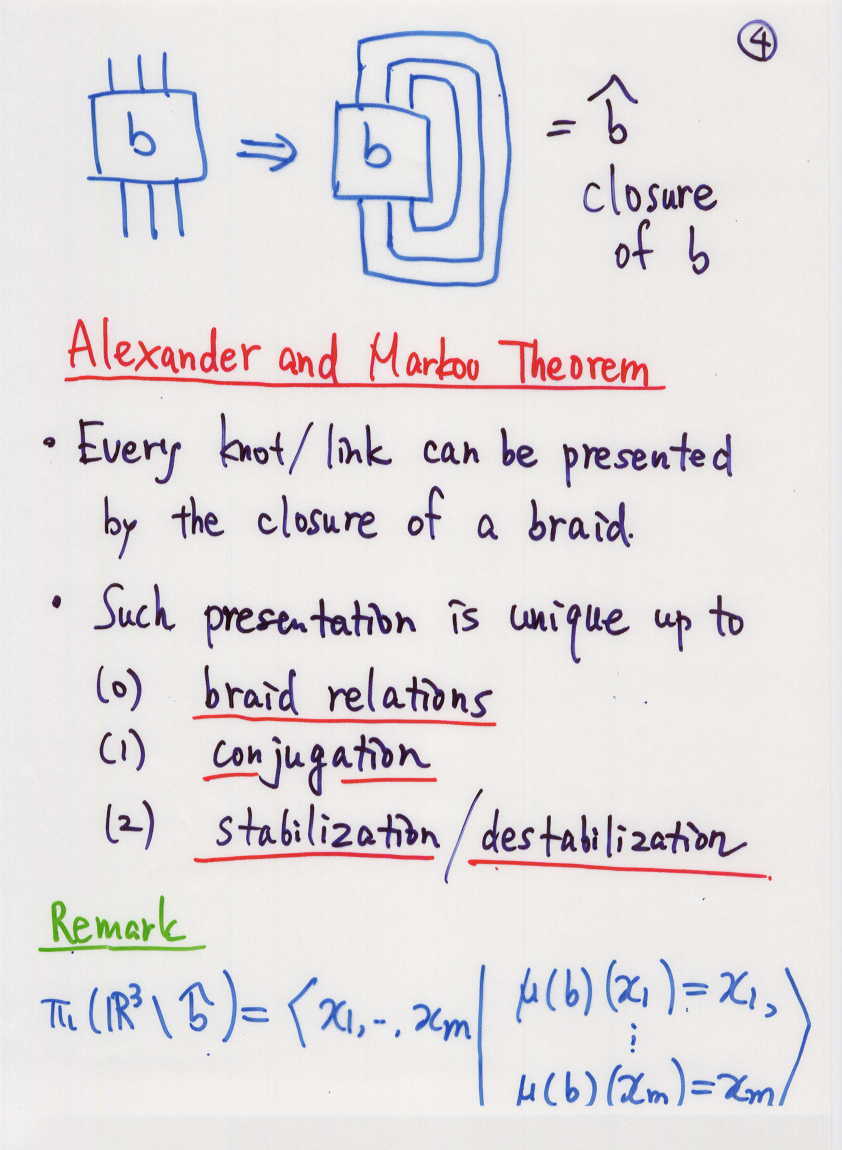 ④
b ⇒ b = b̂
closure
of b
Alexander and Markov Theorem
• Every knot/link can be presented
by the closure of a braid.
• Such presentation is unique up to
(0) braid relations
(1) conjugation
(2) stabilization/destabilization
Remark
π₁(ℝ³\b̂) = ⟨x₁, ‥, xₘ | μ(b)(x₁) = x₁,
⋮
μ(b)(xₘ) = xₘ⟩